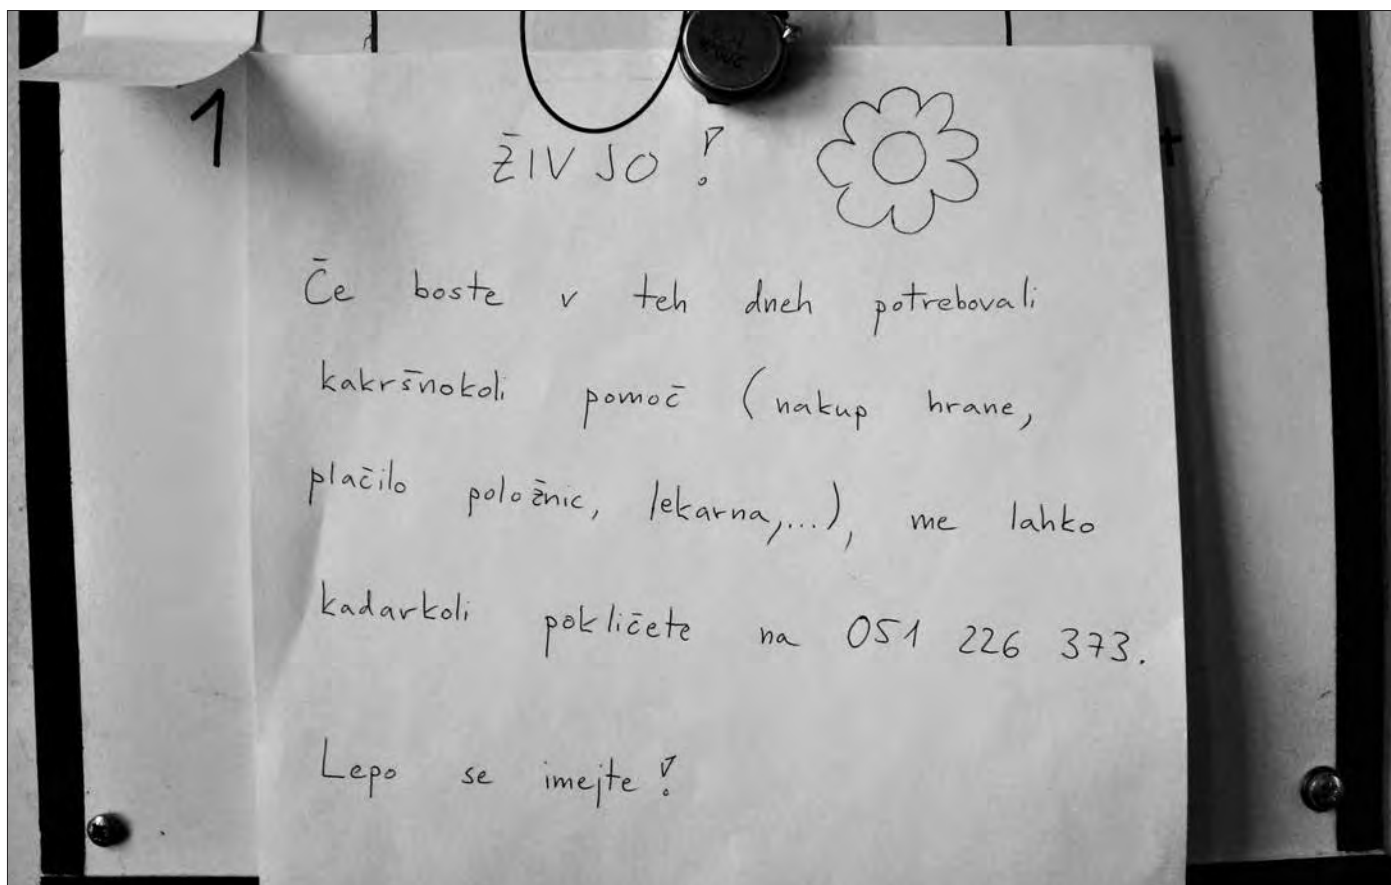 1
ŽIVJO!
Če boste v teh dneh potrebovali
kakršnokoli pomoč (nakup hrane,
plačilo položnic, lekarna,...), me lahko
kadarkoli pokličete na 051 226 373.
Lepo se imejte!